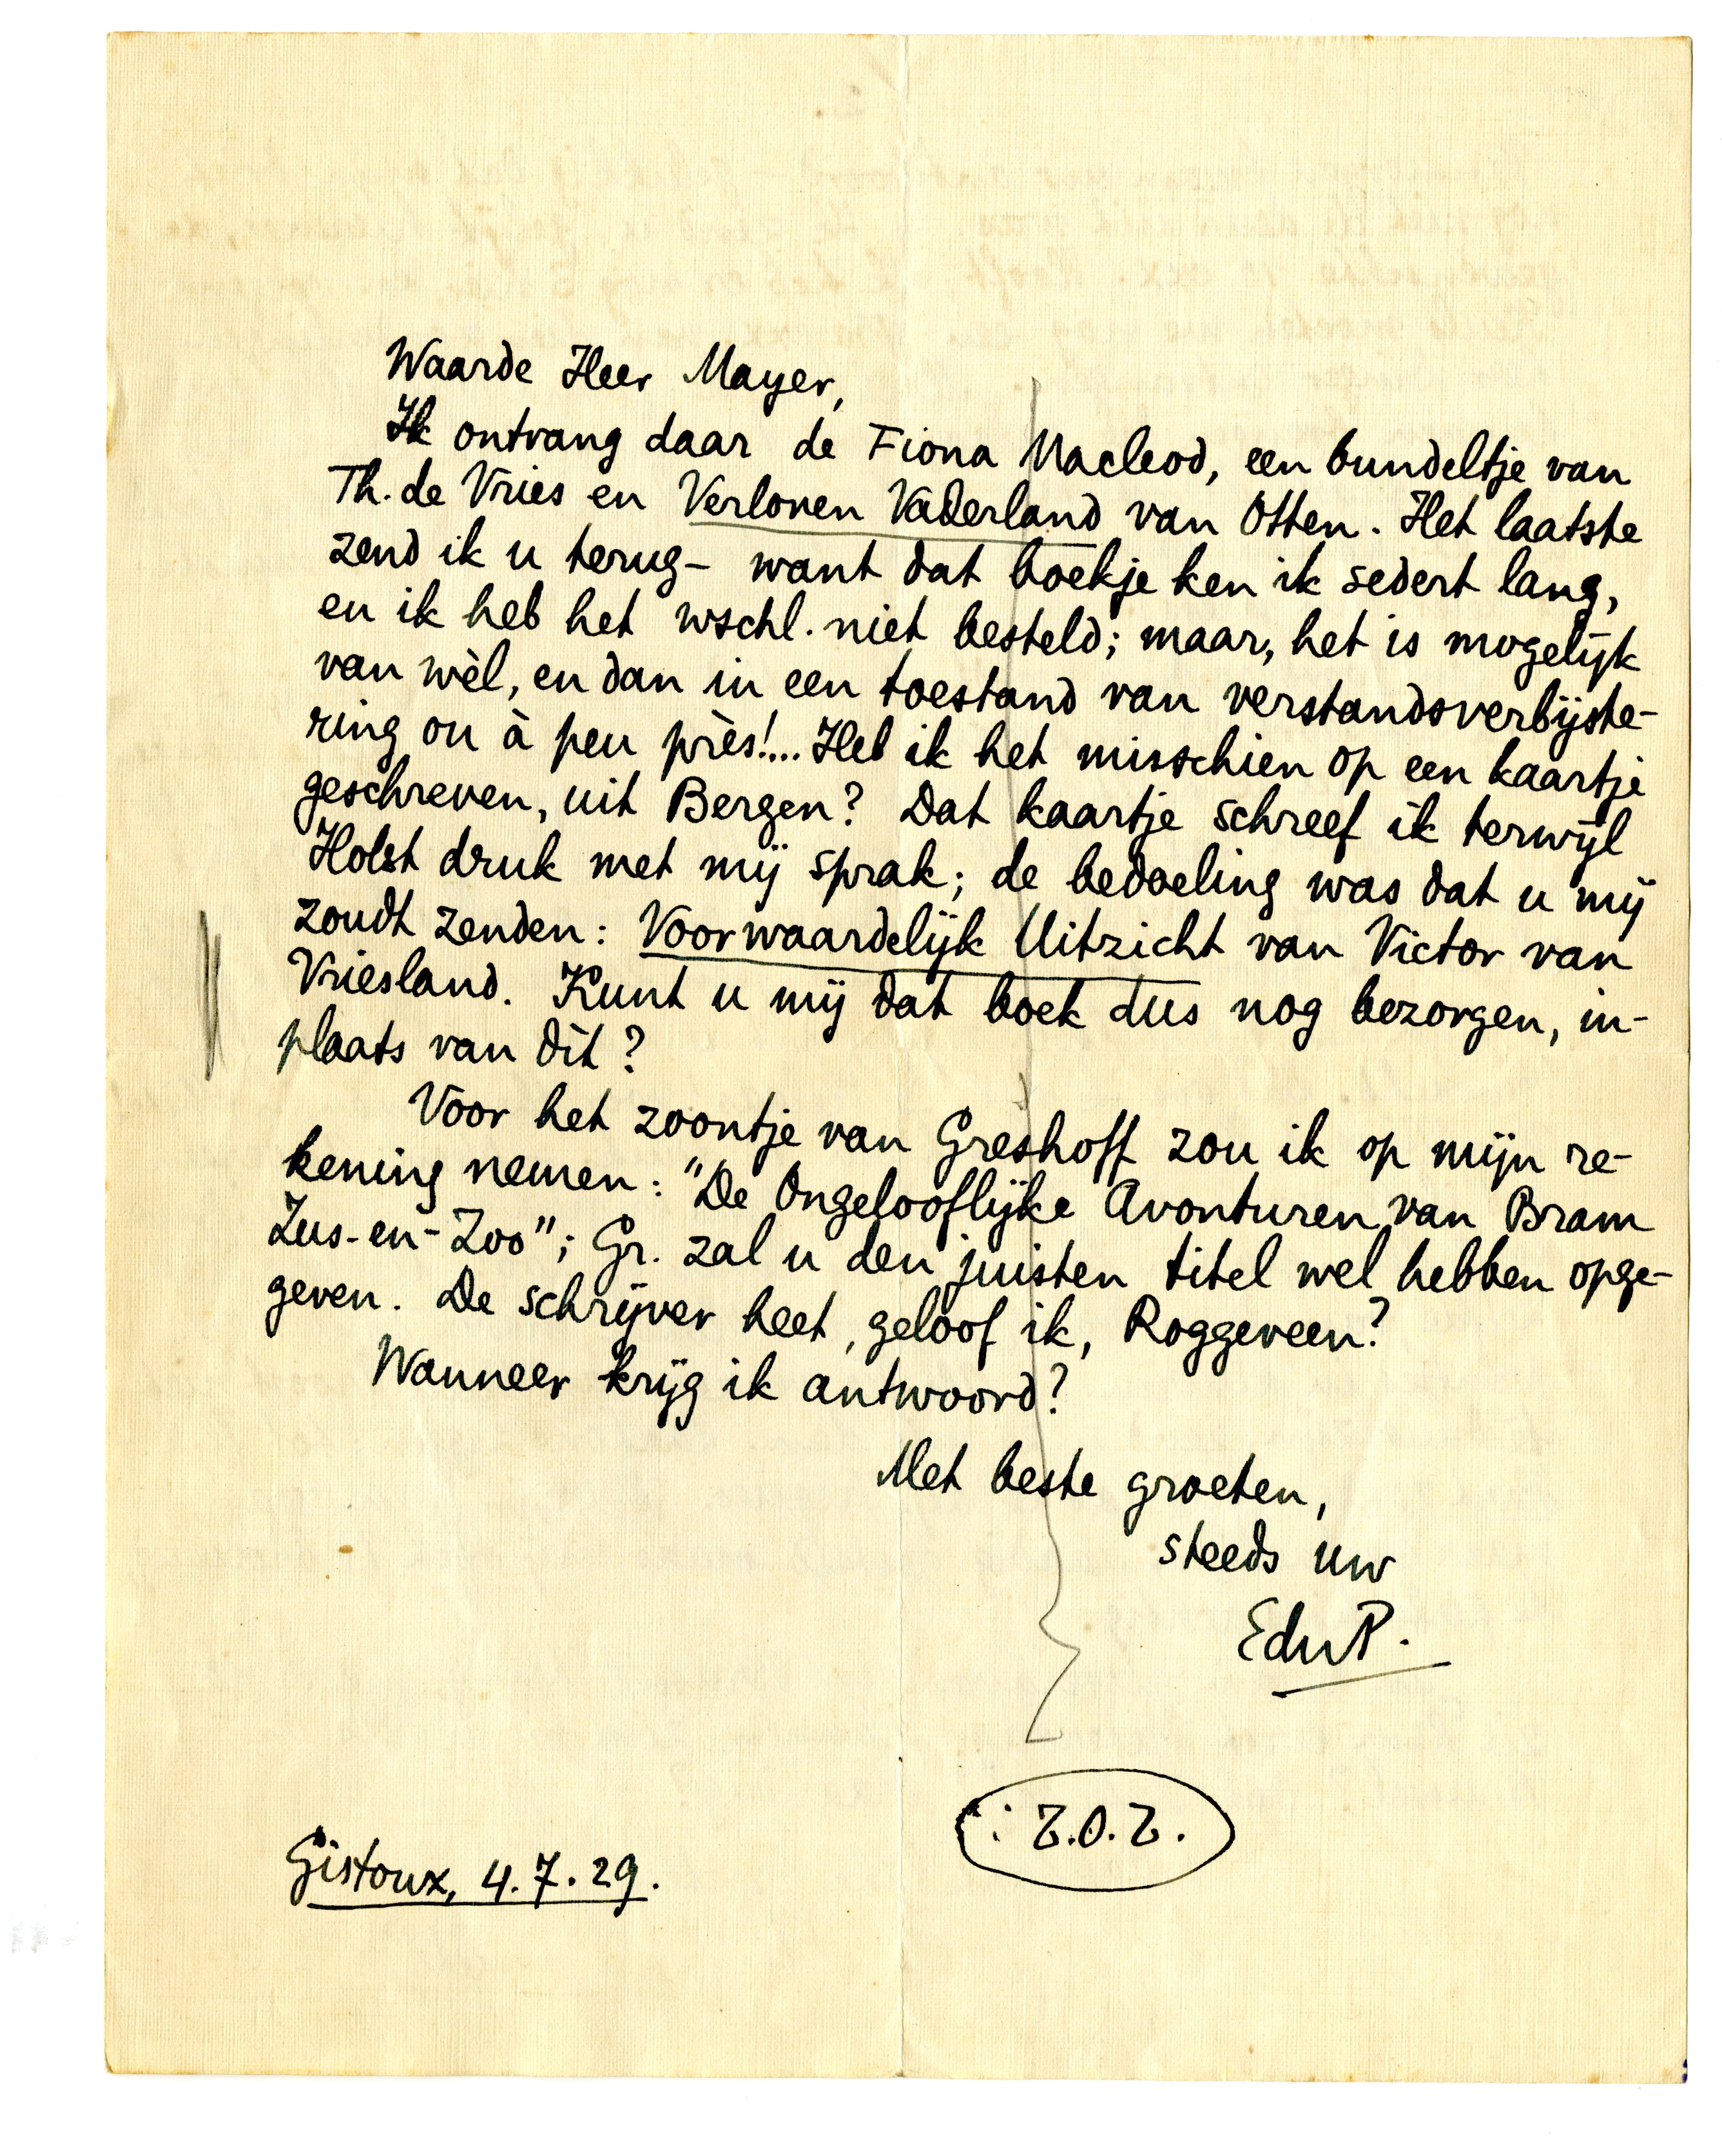 Waarde Heer Mayer,
Ik ontvang daar de Fiona Macleod, een bundeltje van
Th. de Vries en Verloren Vaderland van Otten. Het laatste
zend ik u terug – want dat boekje ken ik sedert lang,
en ik heb het wschl. niet besteld; maar, het is mogelijk
van wèl, en dan in een toestand van verstandsverbijste-
ring ou à peu près!... Heb ik het misschien op een kaartje
geschreven, uit Bergen? Dat kaartje schreef ik terwijl
Holst druk met mij sprak; de bedoeling was dat u mij
zoudt zenden: Voorwaardelijk Uitzicht van Victor van
Vriesland. Kunt u mij dat boek dus nog bezorgen, in-
plaats van dit?
Voor het zoontje van Greshoff zou ik op mijn re-
kening nemen: "De Ongelooflijke Avonturen van Bram
Zus-en-Zoo"; Gr. zal u den juisten titel wel hebben opge-
geven. De schrijver heet, geloof ik, Roggeveen?
Wanneer krijg ik antwoord?
Met beste groeten,
steeds uw
EduP.
Z.O.Z.
Gistoux, 4.7.29.